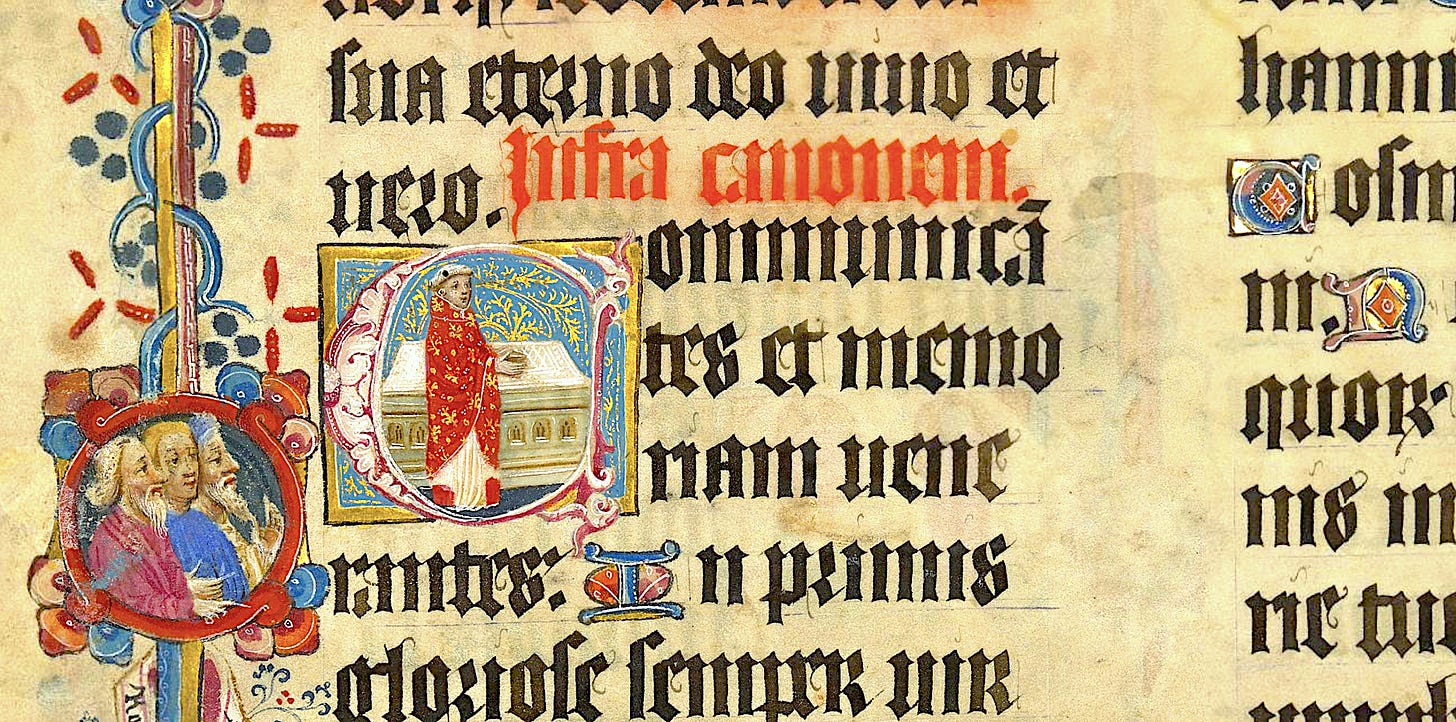 sua eterno deo uiuo et
uero. Infra canonem.
Communicā
tes et memo
riam uene
rantes: In primis
gloriose semper uir
hanni
Cosm
quoꝝ
nis in